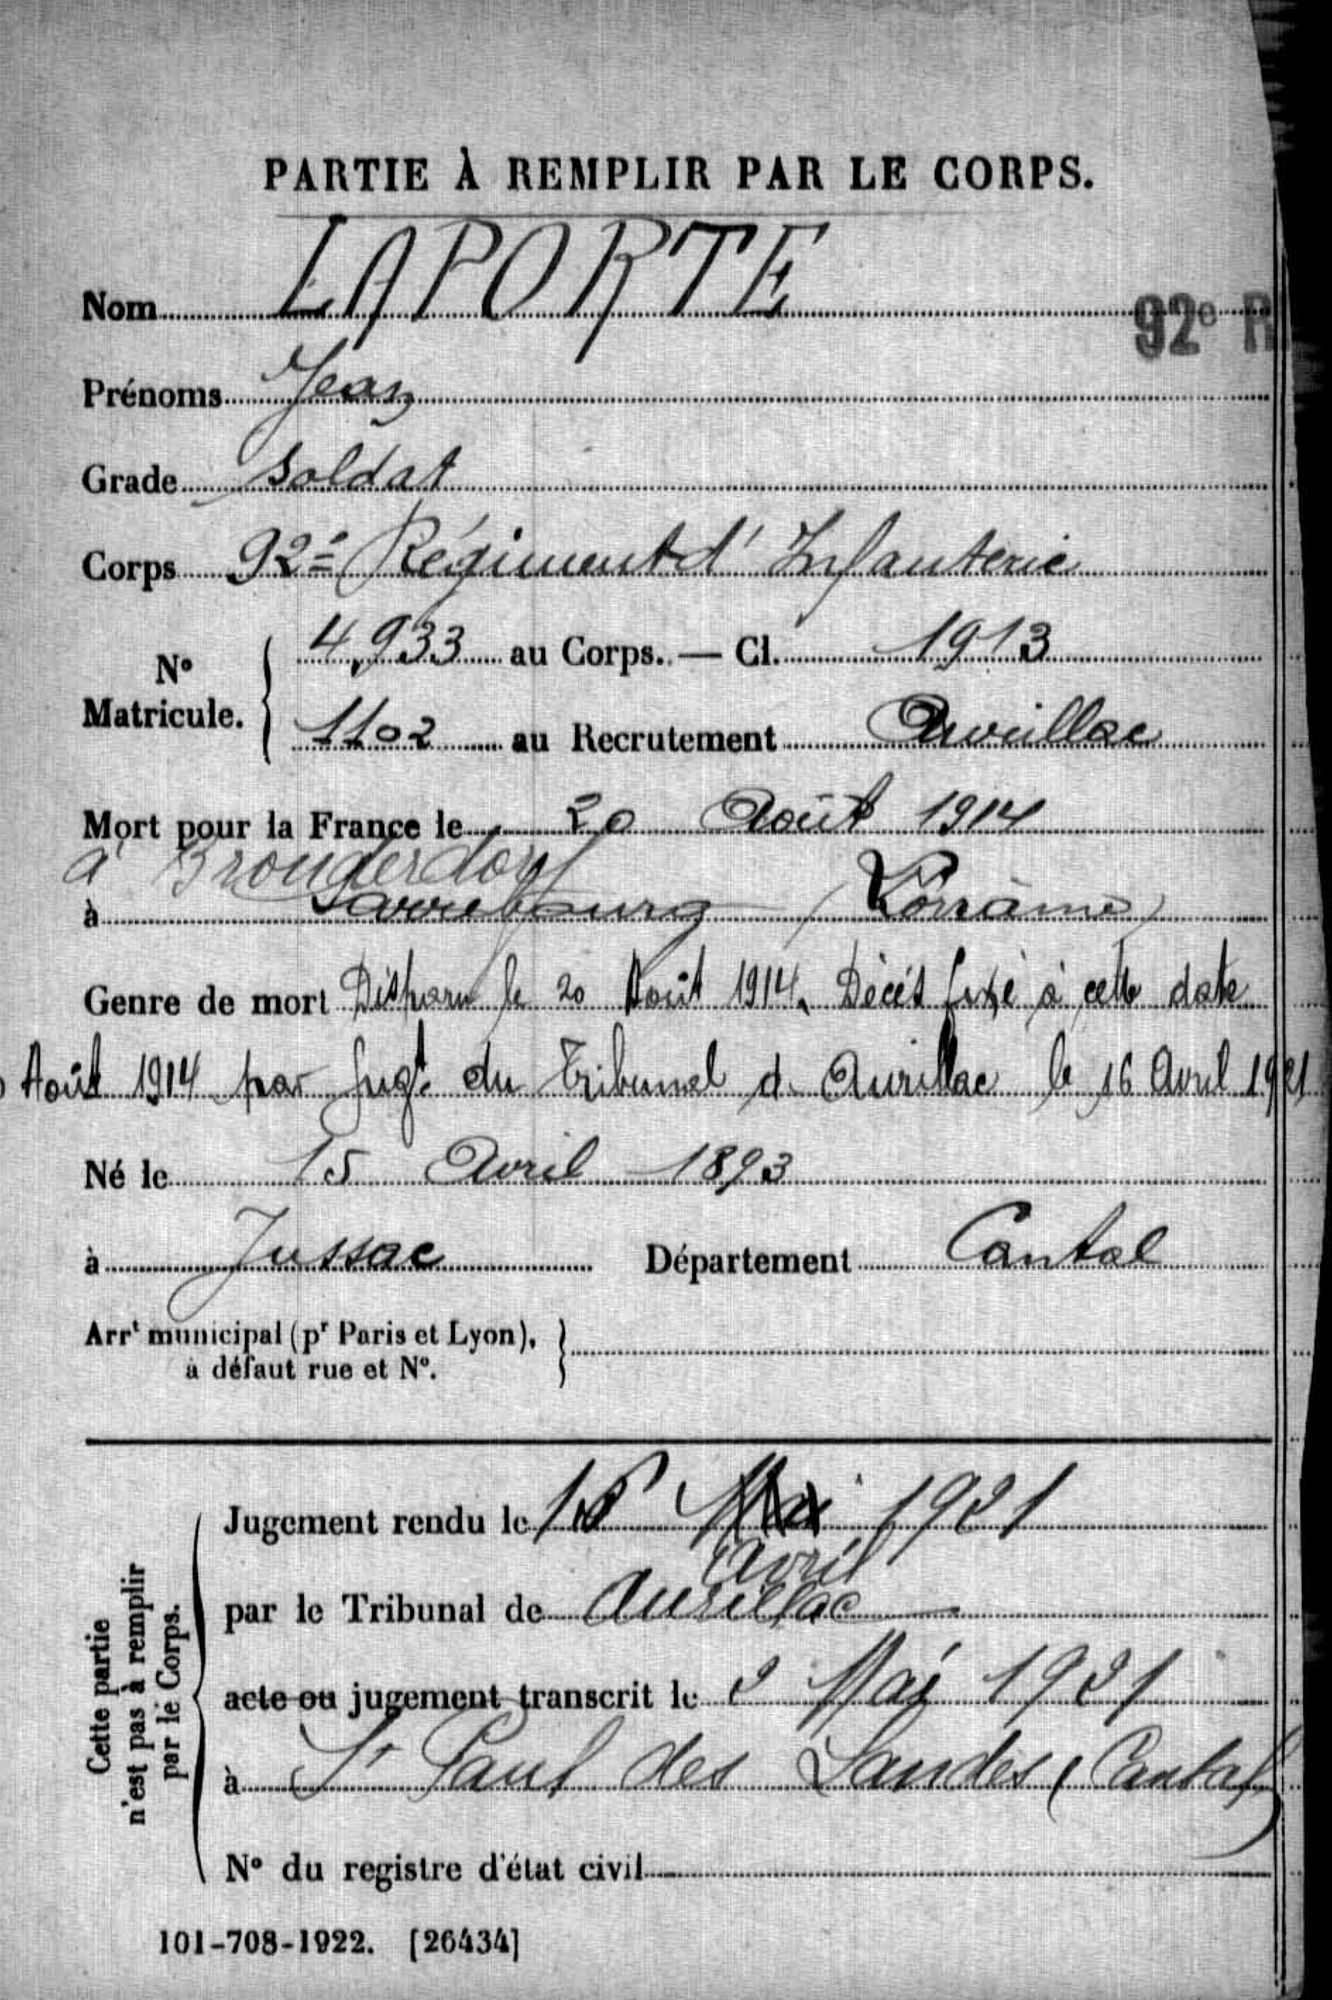 PARTIE À REMPLIR PAR LE CORPS.
Nom LAPORTE
92e R
Prénoms Jean
Grade Soldat
Corps 92e Régiment d'Infanterie
No Matricule. 4,933 au Corps. — Cl. 1913
1102 au Recrutement Aurillac
Mort pour la France le 20 Août 1914
à Brouderdorf
à Sarrebourg (Lorraine)
Genre de mort Disparu le 20 Août 1914. Décès fixé à cette date
Août 1914 par Jugt. du Tribunal d. Aurillac le 16 Avril 1921
Né le 15 Avril 1893
à Jussac Département Cantal
Arrt municipal (pr Paris et Lyon),
à défaut rue et No.
Cette partie
n'est pas à remplir
par le Corps.
Jugement rendu le Mai 1921
Avril
par le Tribunal de Aurillac
acte ou jugement transcrit le 2 Mai 1921
à St Paul des Landes (Cantal)
No du registre d'état civil
101-708-1922. [26434]